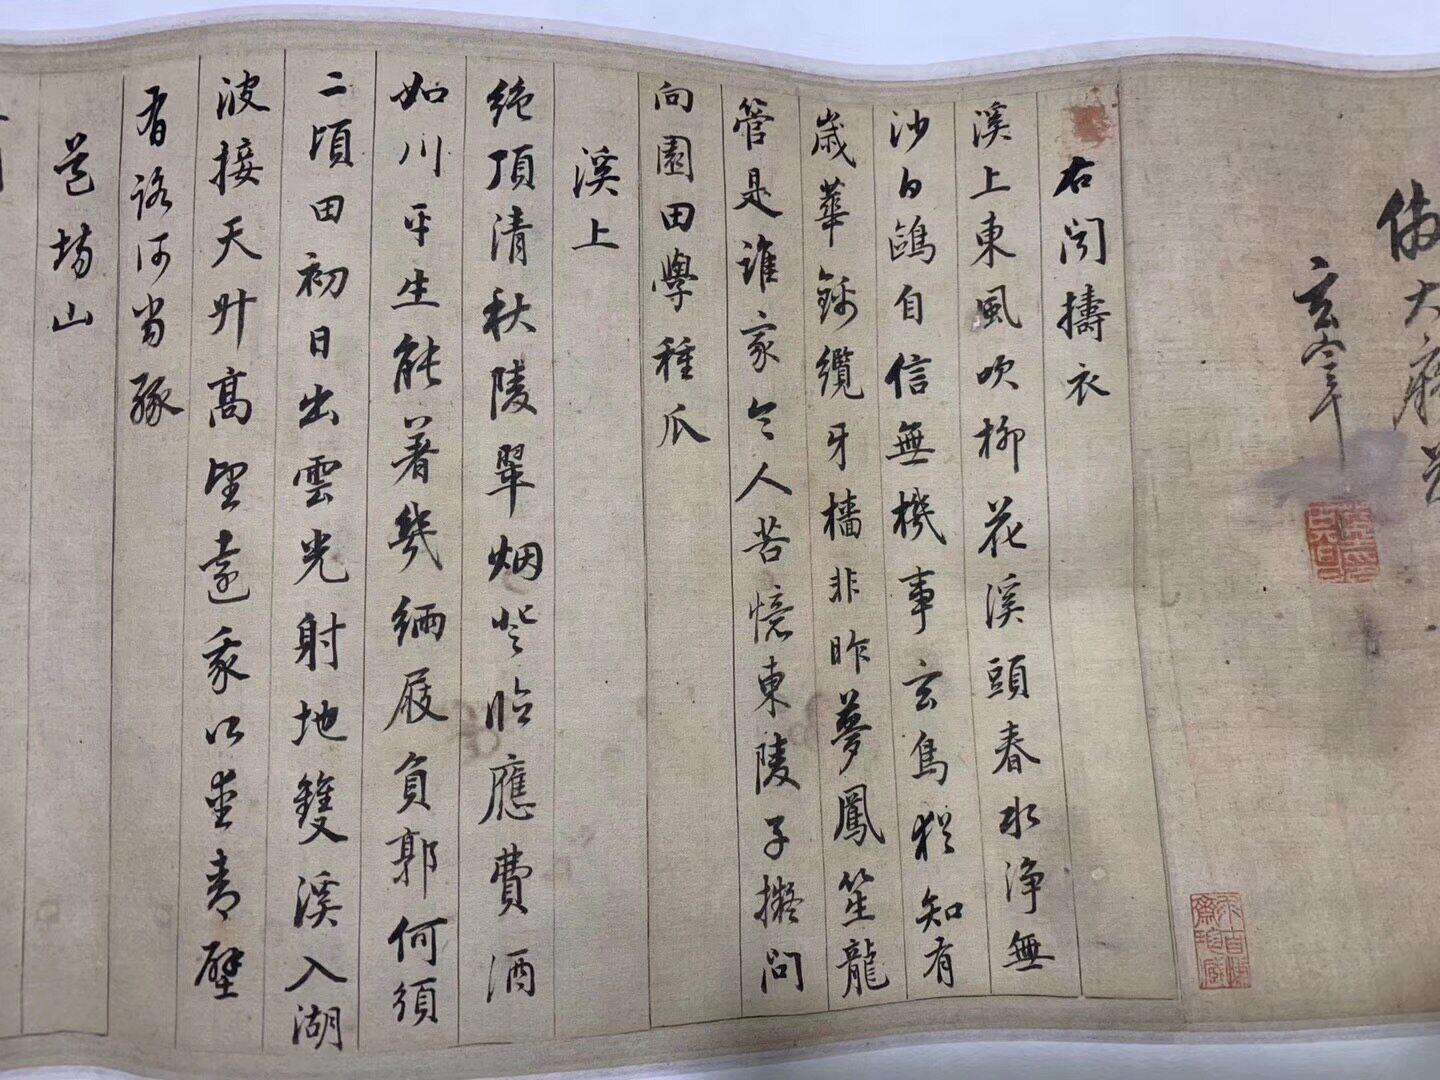 倣大
玄宰
右聞擣衣
溪上東風吹柳花溪頭春水淨無
沙白鷗自信無機事玄鳥猶知有
歲華錦纜牙檣非昨夢鳳笙龍
管是誰家令人苦憶東陵子擬問
向園田學種瓜
溪上
絶頂清秋陵翠烟登臨應費酒
如川平生能著幾緉屐負郭何須
二頃田初日出雲光射地雙溪入湖
波接天升高望遠我所愛青壁
有路何當緣
道場山